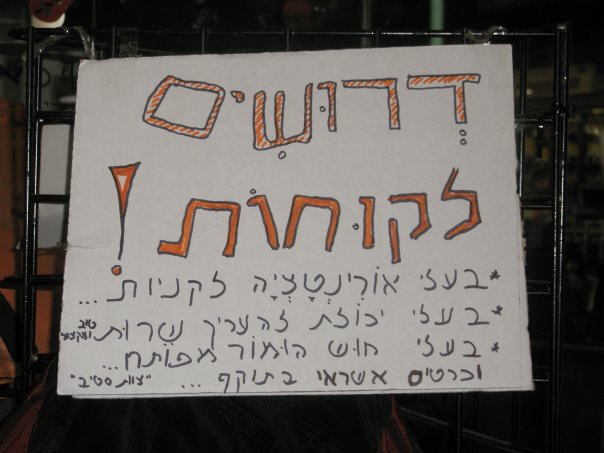 דְרוּשִׁים
לקוּחוֹת!
*בעלי אוֹרִינְטָצְיָה לקניות...
*בעלי יכולת להעריך שֵרוּת טוב ומקצועי
*בעלי חוש הומור מפותח...
וכרטיס אשראי בתוקף... "צוות סטיב"